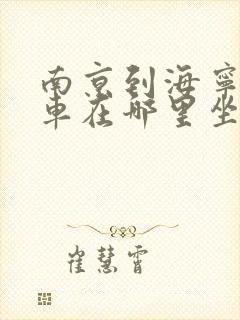 南京到海宁
车在哪里坐
崔慧霄